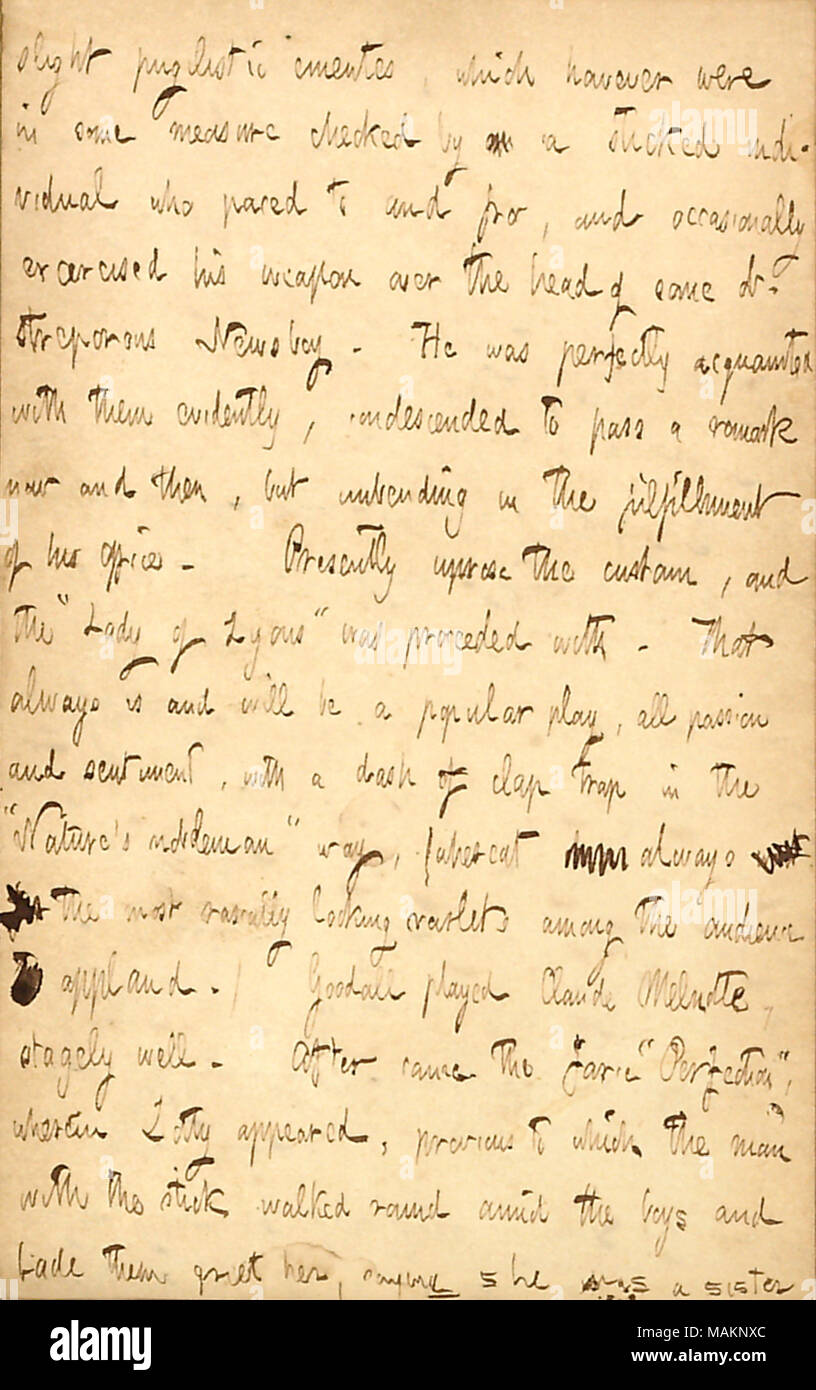 slight pugilistic emeutes, which however were
in some measure checked by a sticked indi-
vidual who paced to and fro, and occasionally
exercised his weapon over the head of some ob-
streporous Newsboy. He was perfectly acquainted
with them evidently, condescended to pass a remark
now and then, but unbending in the fulfillment
of his office. Presently uprose the curtain, and
the "Lady of Lyons" was proceded with. That
always is and will be a popular play, all passion
and sentiment, with a dash of clap trap in the
"Nature's nobleman" way, (whereat always
the most rascally looking varlets among the audience
applaud.) Goodall played Claude Melnotte,
stagely well. After came the farce "Perfection",
wherein Lotty appeared, previous to which the man
with the stick walked round amid the boys and
bade them greet her, saying she was a sister
alamy
alamy
Image ID: MAKNXC
www.alamy.com